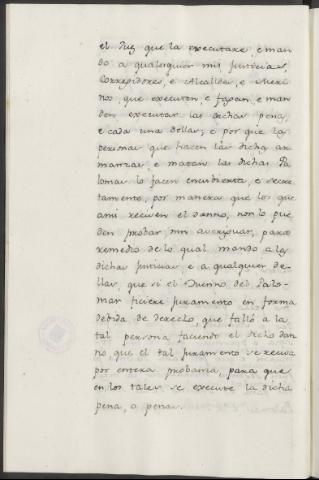 el Juez que la executare, e man
do a qualesquier mis Justicias,
Corregidores, e Alcaldes, e Meri
nos, que executen, e fagan, e man
den executar las dichas penas,
e cada una dellas; e por que las
personas que hacen las dichas ar
manzas e matan las dichas Pa
lomas lo facen encubierta, e secre
tamente, por manera que los que
ansi reciven el danno, non lo pue
den probar nin averiguar, para
remedio de lo qual mando a las
dichas Justicias e a qualquier de
llas, que si el Duenno del Palo
mar ficiere juramento en forma
debida de derecho, que falló a la
tal persona faciendo el dicho dan
no, que el tal juramento se reciva
por entera probanza, para que
en los tales se execute la dicha
pena, o penas.